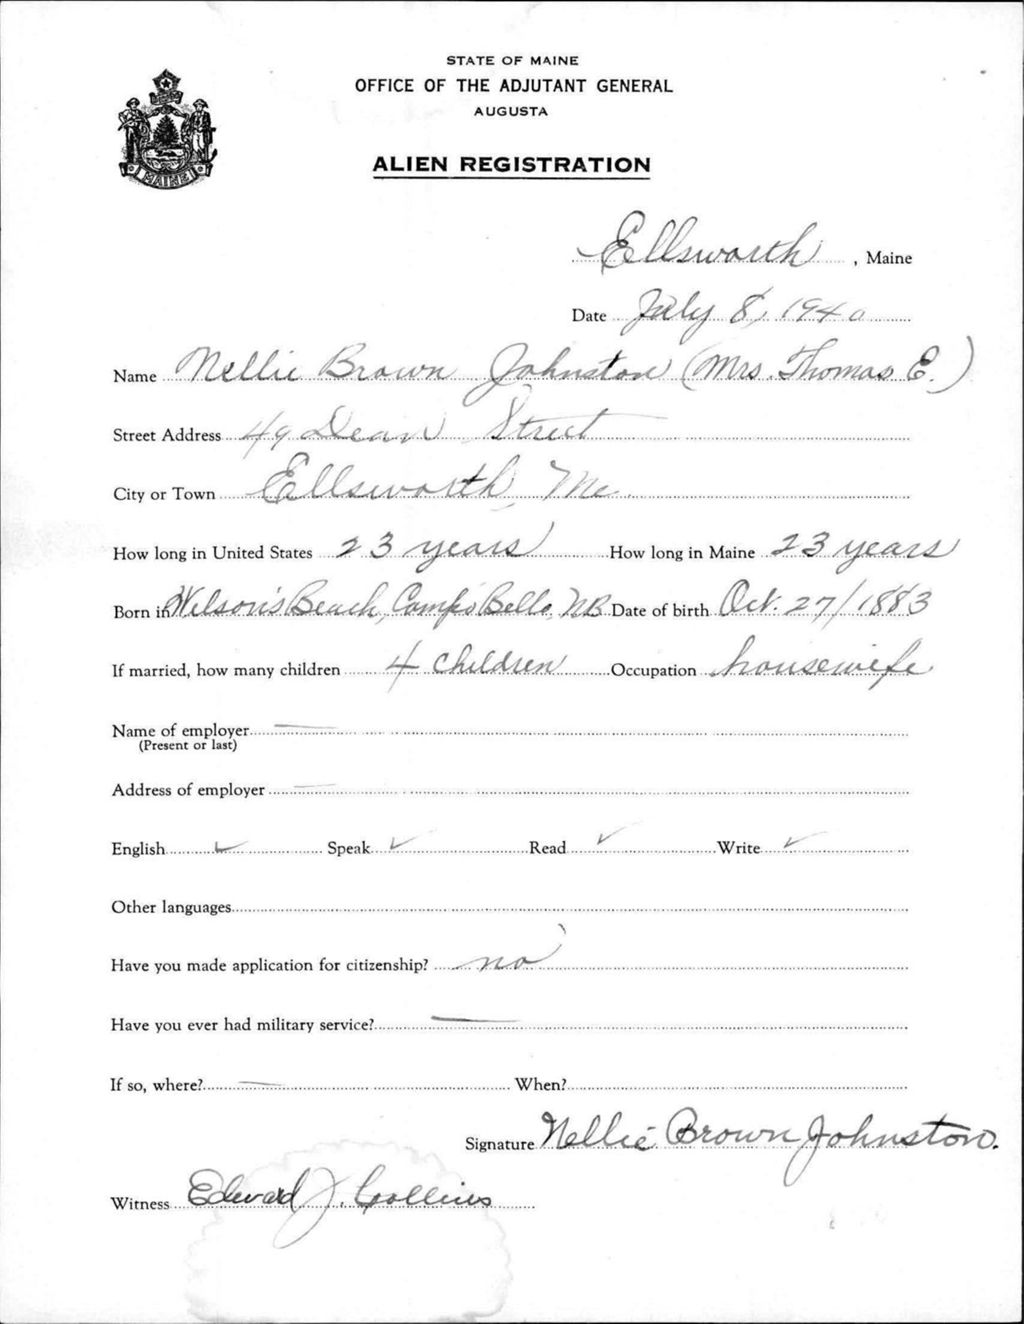 STATE OF MAINE
OFFICE OF THE ADJUTANT GENERAL
AUGUSTA
ALIEN REGISTRATION
MAINE
Ellsworth, Maine
Date July 8, 1940
Name Nellie Brown Johnston (Mrs. Thomas E.)
Street Address 49 Dean Street
City or Town Ellsworth Me.
How long in United States 23 years How long in Maine 23 years
Born in Wilson's Beach, Campo Bello, NB Date of birth Oct. 27/1883
If married, how many children 4 children Occupation housewife
Name of employer —
(Present or last)
Address of employer —
English ✓ Speak ✓ Read ✓ Write ✓
Other languages
Have you made application for citizenship? no
Have you ever had military service? —
If so, where? — When?
Signature Nellie Brown Johnston.
Witness Edward J. Collins